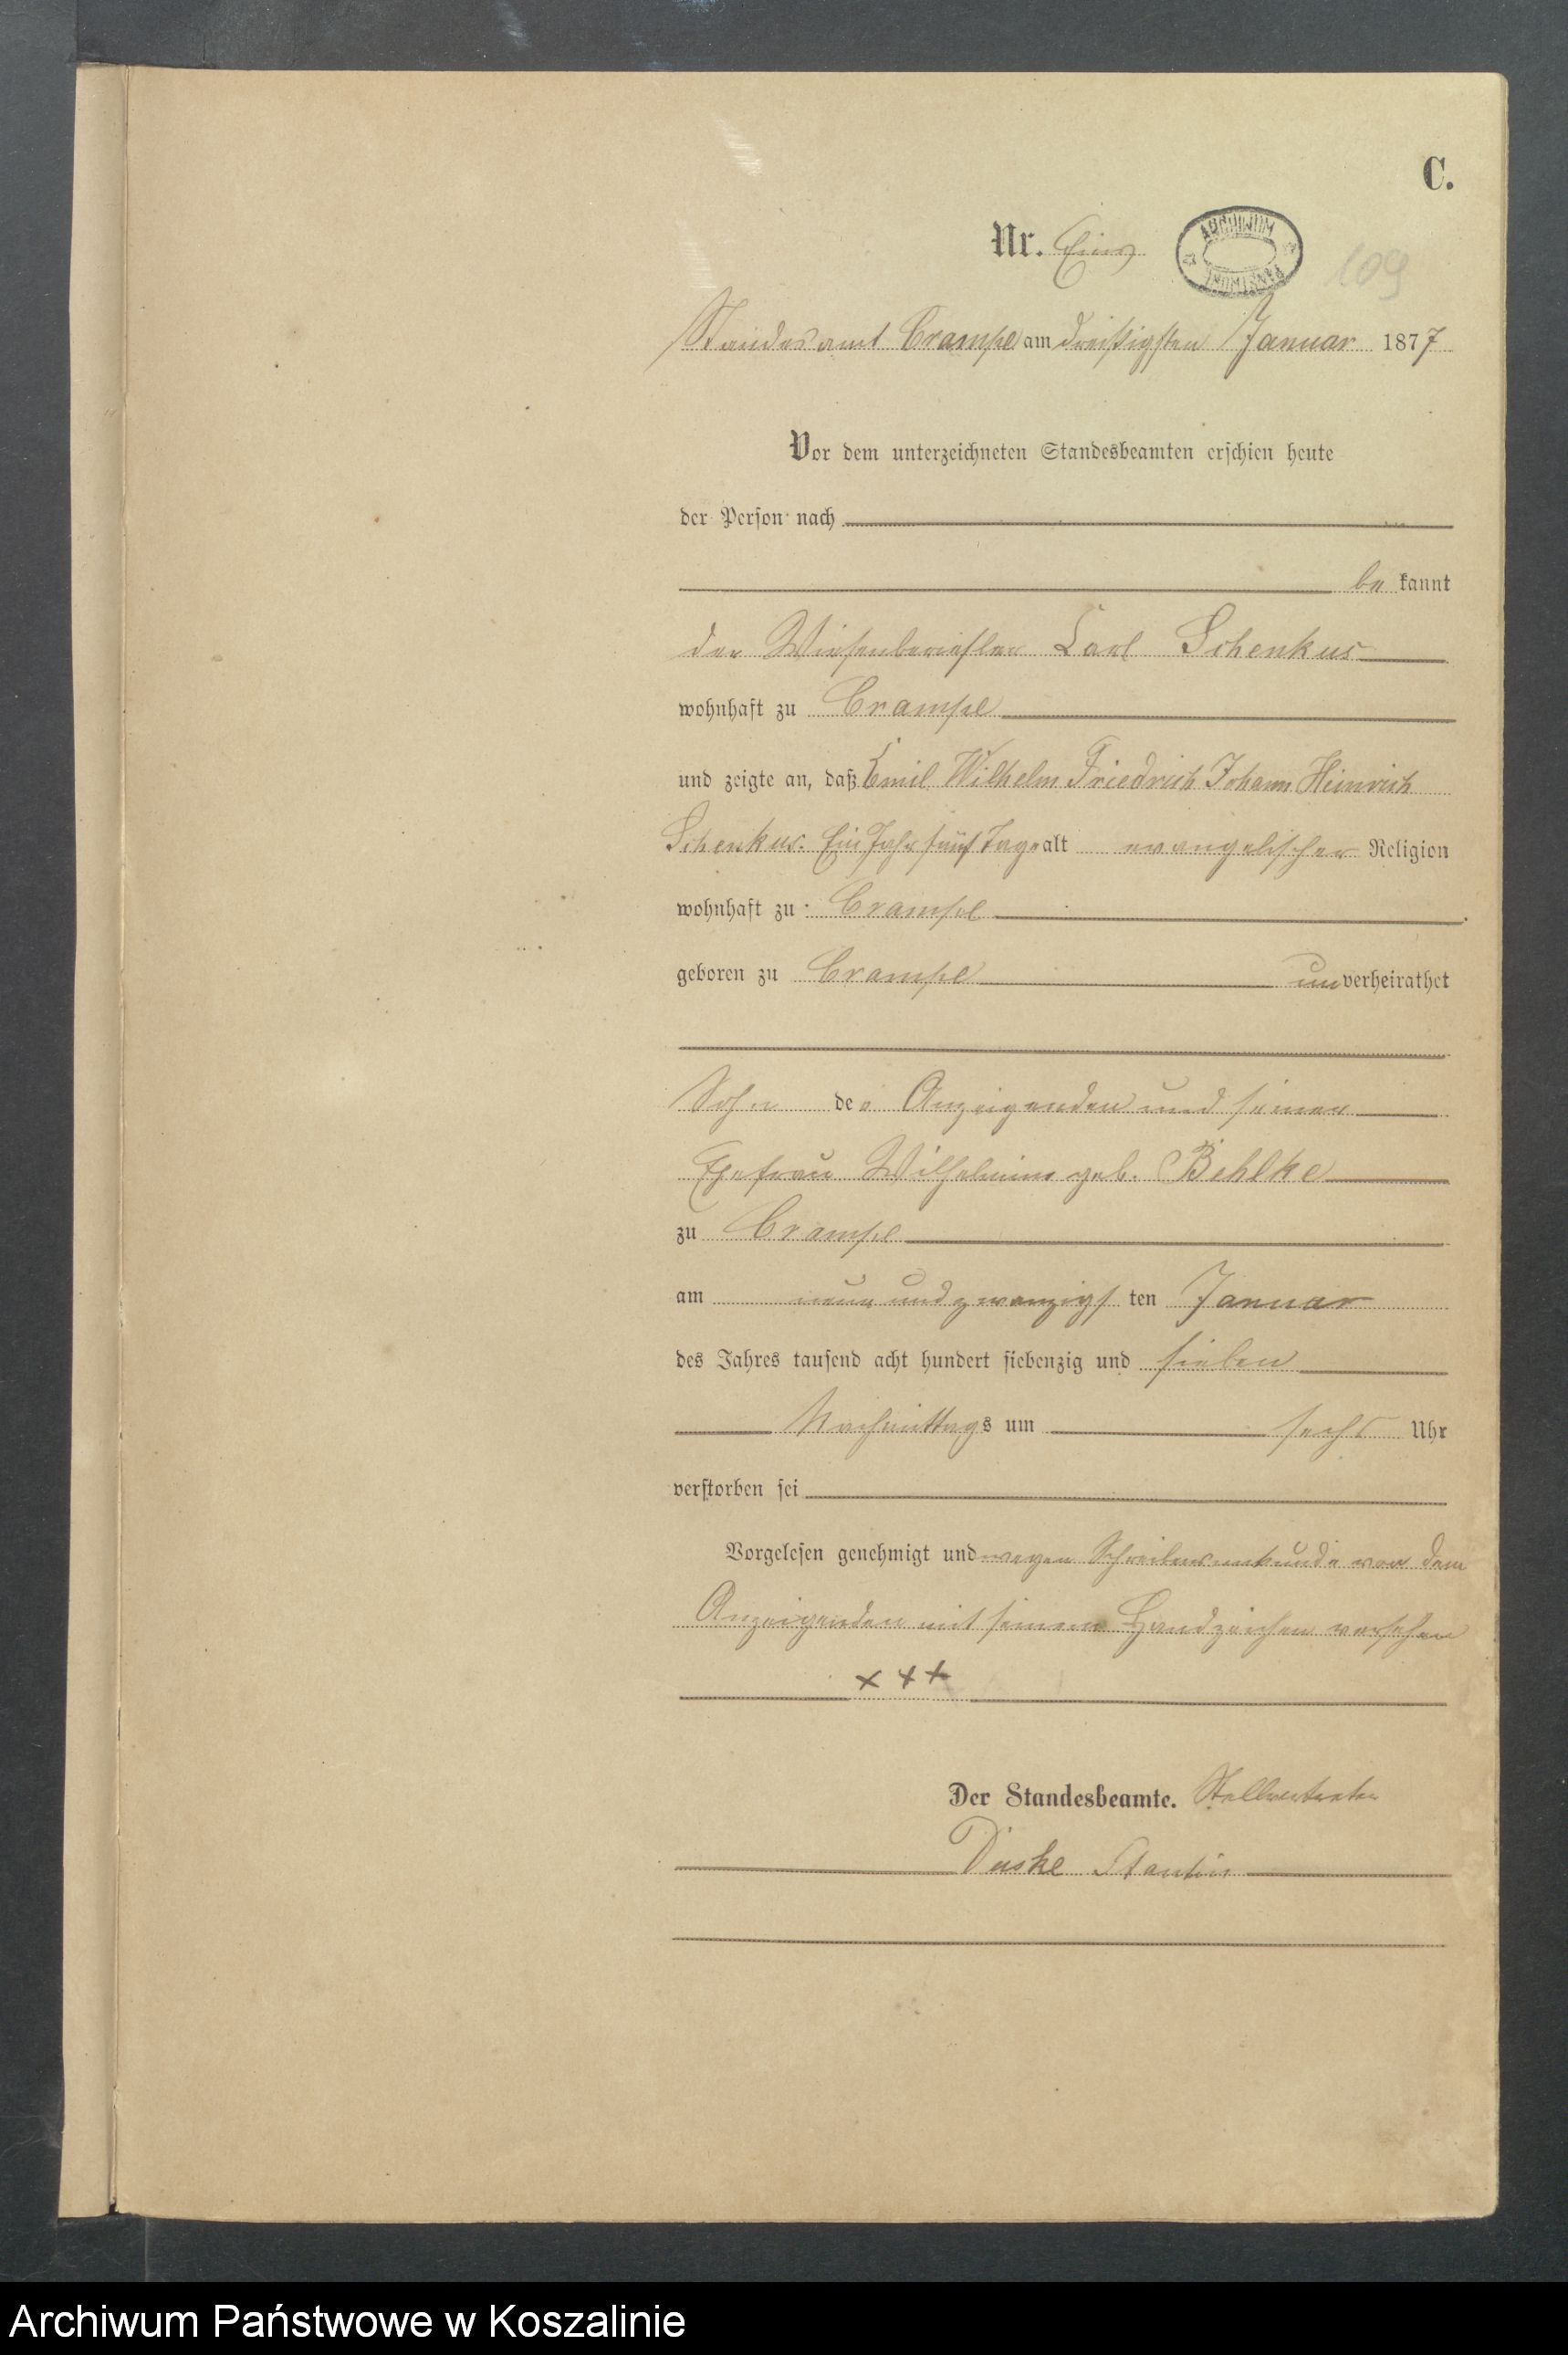 C.
Nr. Eins
ARCHIWUM PAŃSTWOWE
109
Standesamt Crampe am dreißigsten Januar 1877
Vor dem unterzeichneten Standesbeamten erschien heute
der Person nach
be kannt
der Carl Schenkus
wohnhaft zu Crampe
und zeigte an, daß Emil Wilhelm Friedrich Johann Heinrich
Schenkus. Ein Jahr fünf Tage alt evangelischer Religion
wohnhaft zu Crampe
geboren zu Crampe un verheirathet
Sohn des Anzeigenden und seiner
Ehefrau Wilhelmine geb. Behlke
zu Crampe
am neun und zwanzigs ten Januar
des Jahres tausend acht hundert siebenzig und sieben
Nachmittags um sechs Uhr
verstorben sei
Vorgelesen genehmigt und wegen Schreibensunkunde von dem
Anzeigenden mit seinem Handzeichen versehen
+++
Der Standesbeamte. Stellvertreter
Archiwum Państwowe w Koszalinie